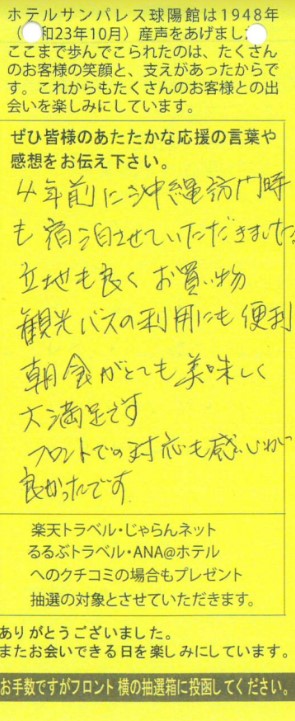 ホテルサンパレス球陽館は1948年
(和23年10月)産声をあげまし
ここまで歩んでこられたのは、たくさん
のお客様の笑顔と、支えがあったからで
す。これからもたくさんのお客様との出
会いを楽しみにしています。
ぜひ皆様のあたたかな応援の言葉や
感想をお伝え下さい。
4年前に沖縄訪門時
も宿泊させていただきました。
立地も良くお買い物
観光バスの利用にも便利
朝食がとても美味しく
大満足です
フロントでの対応も感じが
良かったです
楽天トラベル・じゃらんネット
るるぶトラベル・ANA@ホテル
へのクチコミの場合もプレゼント
抽選の対象とさせていただきます。
ありがとうございました。
またお会いできる日を楽しみにしています。
お手数ですがフロント横の抽選箱に投函してください。